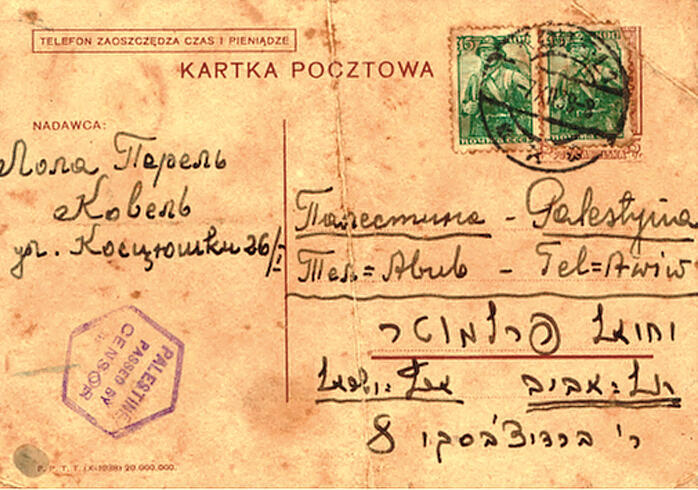 TELEFON ZAOSZCZĘDZA CZAS I PIENIĄDZE
KARTKA POCZTOWA
NADAWCA:
Лола Перель
Ковель
ул. Косцюшки 26/I
Палестина - Palestyna
Тел=Авив - Tel=Awiw
פרלמוטר
תל=אביב
ר' ברדיצ'בסקי 8
PALESTINE
PASSED BY
CENSOR
P. P. T. T. (X-1938) 20.000.000.